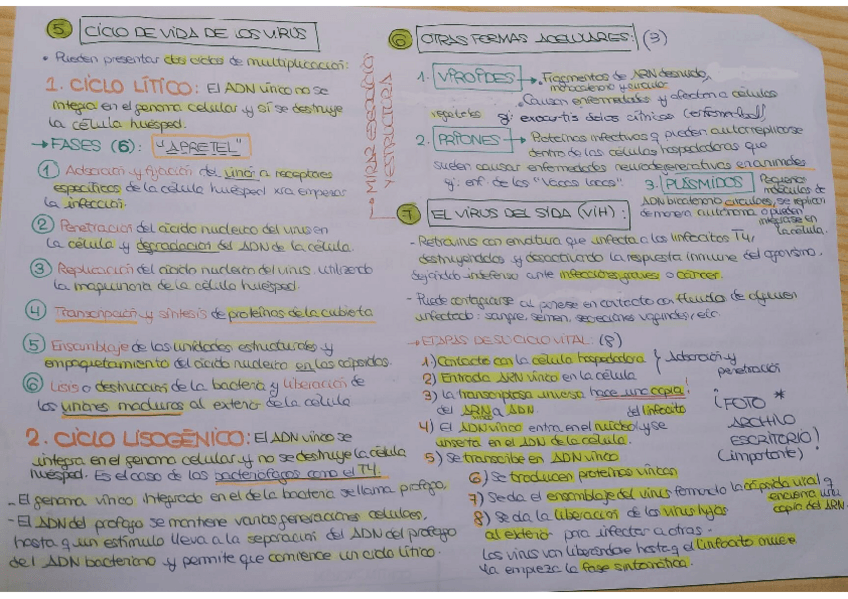 5 CICLO DE VIDA DE LOS VIRUS
• Pueden presentar dos ciclos de multiplicación:
1. CICLO LÍTICO: El ADN vírico no se
integra en el genoma celular y sí se destruye
la célula huésped.
→ FASES (6): "APRETEL"
1 Adsorción y fijación del virión a receptores
específicos de la célula huésped xra empezar
la infección.
2 Penetración del ácido nucleico del virus en
la célula y degradación del ADN de la célula.
3 Replicación del ácido nucleico del virus utilizando
la maquinaria de la célula huésped.
4 Transcripción y síntesis de proteínas de la cubierta
5 Ensamblaje de las unidades estructurales y
empaquetamiento del ácido nucleico en las cápsidas.
6 Lisis o destrucción de la bacteria y liberación de
los viriones maduros al exterior de la célula
2. CICLO LISOGÉNICO: El ADN vírico se
integra en el genoma celular y no se destruye la célula
huésped. Es el caso de los bacteriófagos como el T4.
- El genoma vírico integrado en el de la bacteria se llama profago.
- El ADN del profago se mantiene varias generaciones celulares,
hasta q un estímulo lleva a la separación del ADN del profago
del ADN bacteriano y permite que comience un ciclo lítico.
MIRAR
6 OTRAS FORMAS ACELULARES: (3)
1. VIROIDES → • Fragmentos de ARN desnudo,
monocatenario y circular
• Causan enfermedades y afectan a células
vegetales ej: exocartis de los cítricos (enfermedad)
2. PRIONES → • Proteínas infectivas q pueden autorreplicarse
dentro de las células hospedadoras que
suelen causar enfermedades neurodegenerativas en animales
ej: enf. de las "Vacas locas".
3. PLÁSMIDOS Pequeñas
moléculas de
ADN bicatenario circulares, se replican
de manera autónoma o pueden
integrarse en
la célula.
7 EL VIRUS DEL SIDA (VIH):
- Retrovirus con envoltura que infecta a los linfocitos T4,
destruyéndolos y desactivando la respuesta inmune del organismo,
dejándolo indefenso ante infecciones graves o cáncer.
- Puede contagiarse al ponerse en contacto con fluidos de alguien
infectado: sangre, semen, secreciones vaginales, etc.
→ ETAPAS DE SU CICLO VITAL: (8)
1) Contacto con la célula hospedadora
2) Entrada ARN vírico en la célula
Adsorción y
penetración
3) la transcriptasa inversa hace una copia
del ARN a ADN. del linfocito
4) El ADN vírico entra en el núcleo y se
inserta en el ADN de la célula.
5) Se transcribe en ADN vírico
6) Se traducen proteínas víricas
7) Se da el ensamblaje del virus formando la cápsida viral q
encierra una
copia del ARN.
8) Se da la liberación de los virus hijos
al exterior para infectar a otras.
Los virus van liberándose hasta q el linfocito muere
y a empieza la fase sintomática.
¡FOTO *
ARCHIVO
ESCRITORIO!
(importante)